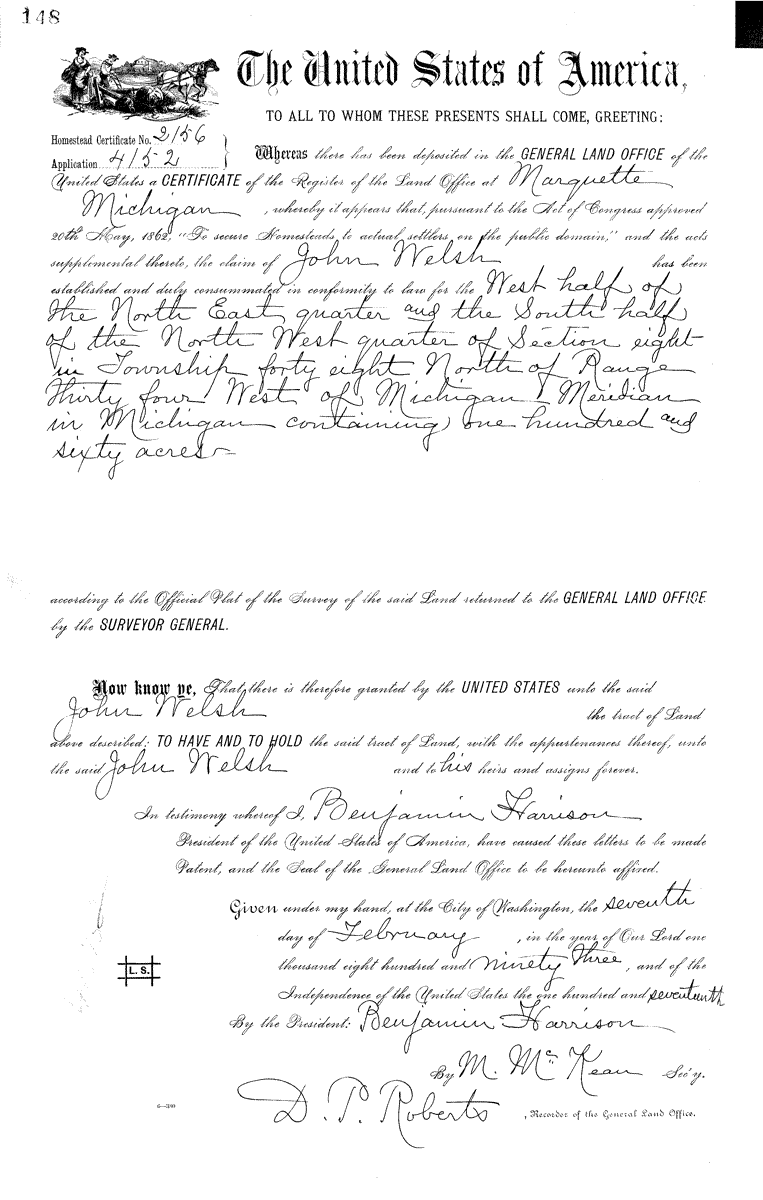 148
The United States of America,
TO ALL TO WHOM THESE PRESENTS SHALL COME, GREETING:
Homestead Certificate No. 2156
Application 4152
Whereas there has been deposited in the GENERAL LAND OFFICE of the
United States a CERTIFICATE of the Register of the Land Office at Marquette
Michigan, whereby it appears that, pursuant to the Act of Congress approved
20th May, 1862, "To secure Homesteads to actual settlers on the public domain," and the acts
supplemental thereto, the claim of John Welsh has been
established and duly consummated in conformity to law for the West half of
the North East quarter and the South half
of the North West quarter of Section eight
in Township forty eight North of Range
thirty four West of Michigan Meridian
in Michigan containing one hundred and
sixty acres
according to the Official Plat of the Survey of the said Land returned to the GENERAL LAND OFFICE
by the SURVEYOR GENERAL.
Now know ye, That there is therefore granted by the UNITED STATES unto the said
John Welsh the tract of Land
above described: TO HAVE AND TO HOLD the said tract of Land, with the appurtenances thereof, unto
the said John Welsh and to his heirs and assigns forever.
In testimony whereof I, Benjamin Harrison
President of the United States of America, have caused these letters to be made
Patent, and the Seal of the General Land Office to be hereunto affixed.
Given under my hand, at the City of Washington, the seventh
day of February, in the year of Our Lord one
thousand eight hundred and ninety three, and of the
Independence of the United States the one hundred and seventeenth
L. S.
By the President: Benjamin Harrison
By M. McKean Sec'y.
D. P. Roberts, Recorder of the General Land Office.